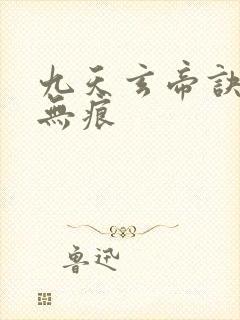 九天玄帝訣
無痕
魯迅